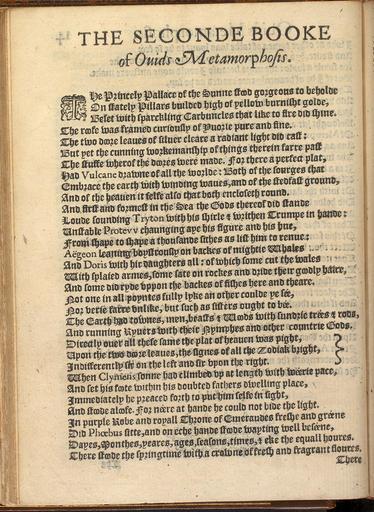 THE SECONDE BOOKE
of Ouids Metamorphosis.
The Princely Pallace of the Sunne stood gorgeous to beholde
On stately Pillars builded high of yellow burnisht golde,
Beset with sparckling Carbuncles that like to fire did shine.
The roofe was framed curiously of Yuorie pure and fine.
The two doore leaues of siluer cleare a radiant light did cast:
But yet the cunning workemanship of things therein farre past
The stuffe wherof the doores were made. For there a perfect plat,
Had Vulcane drawne of all the worlde: Both of the sourges that
Embrace the earth with winding waues, and of the stedfast ground,
And of the heauen it selfe also that both encloseth round.
And first and formest in the Sea the Gods thereof did stande
Loude sounding Tryton with his shirle & writhen Trumpe in hande:
Unstable Protevv chaunging aye his figure and his hue,
From shape to shape a thousande sithes as list him to renue:
Aëgeon leaning boystrously on backes of mightie Whales
And Doris with hir daughters all: of which some cut the wales
With splaied armes, some sate on rockes and dride their goodly haire,
And some did ryde vppon the backes of fishes here and theare.
Not one in all poyntes fully lyke an other coulde ye see,
Nor verie farre vnlike, but such as sisters ought to bee.
The Earth had townes, men, beasts & Woods with sundrie trees & rods,
And running Ryuers with their Nymphes and other countrie Gods.
Directly ouer all these same the plat of heauen was pight,
Upon the two doore leaues, the signes of all the Zodiak bright,
Indifferently six on the left and six vpon the right.
When Clymens sonne had climbed vp at length with weerie pace,
And set his foote within his doubted fathers dwelling place,
Immediately he preaced forth to put him selfe in sight,
And stoode aloofe. For neere at hande he could not bide the light.
In purple Robe and royall Throne of Emeraudes freshe and greene
Did Phœbus sitte, and on eche hande stoode wayting well beseene,
Dayes, Monthes, yeares, ages, seasons, times, & eke the equall houres.
There stoode the springtime with a crowne of fresh and fragrant floures.
There